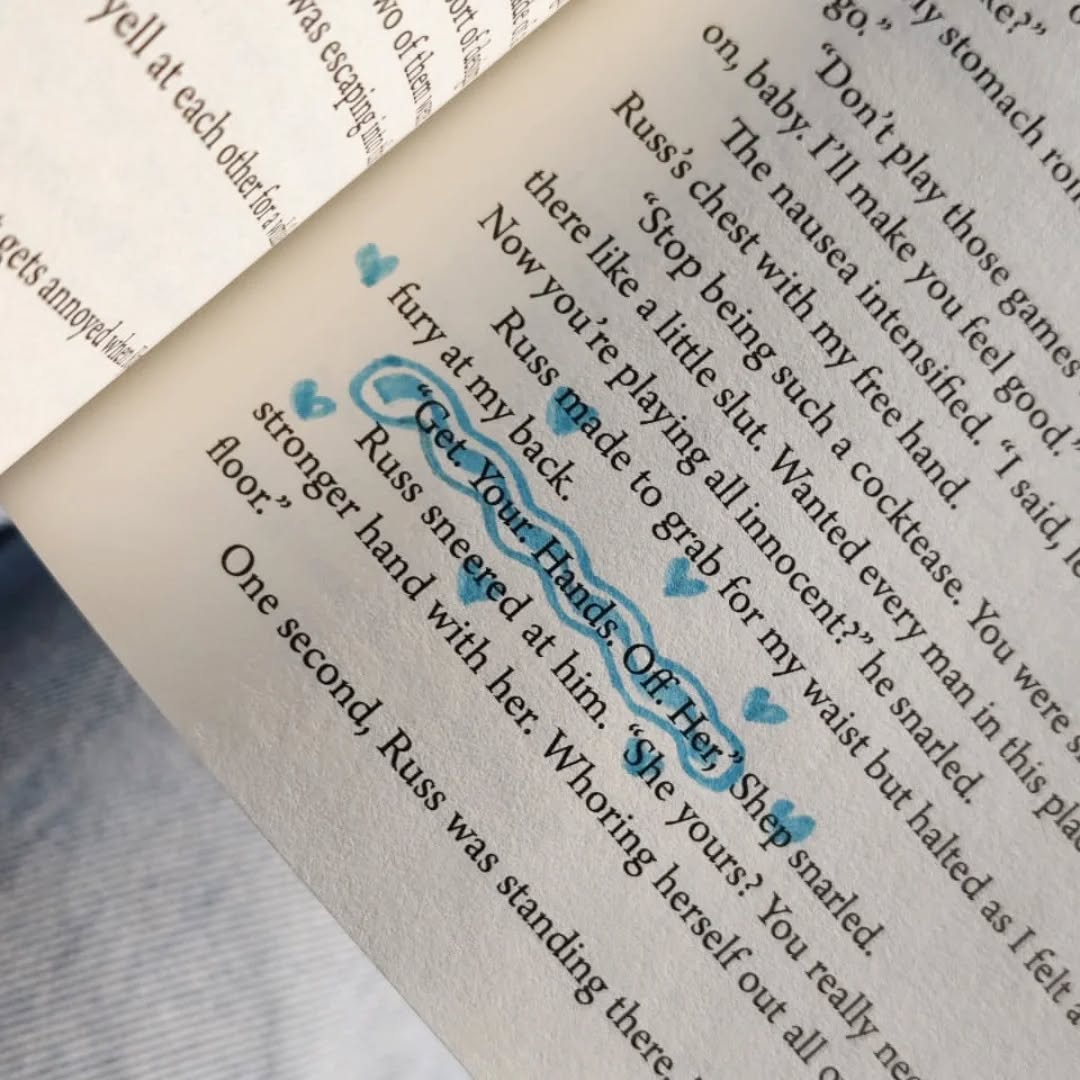 yell at each other for a
was escaping into
two of them
ort of
gets annoyed when
ke?"
y stomach
go."
"Don't play those games
on, baby. I'll make you feel good."
The nausea intensified. "I said,
Russ's chest with my free hand.
"Stop being such a cocktease. You were
there like a little slut. Wanted every man in this
Now you're playing all innocent?" he snarled.
Russ made to grab for my waist but halted as I felt a
fury at my back.
"Get. Your. Hands. Off. Her," Shep snarled.
Russ sneered at him. "She yours? You really
stronger hand with her. Whoring herself out all
floor."
One second, Russ was standing there.